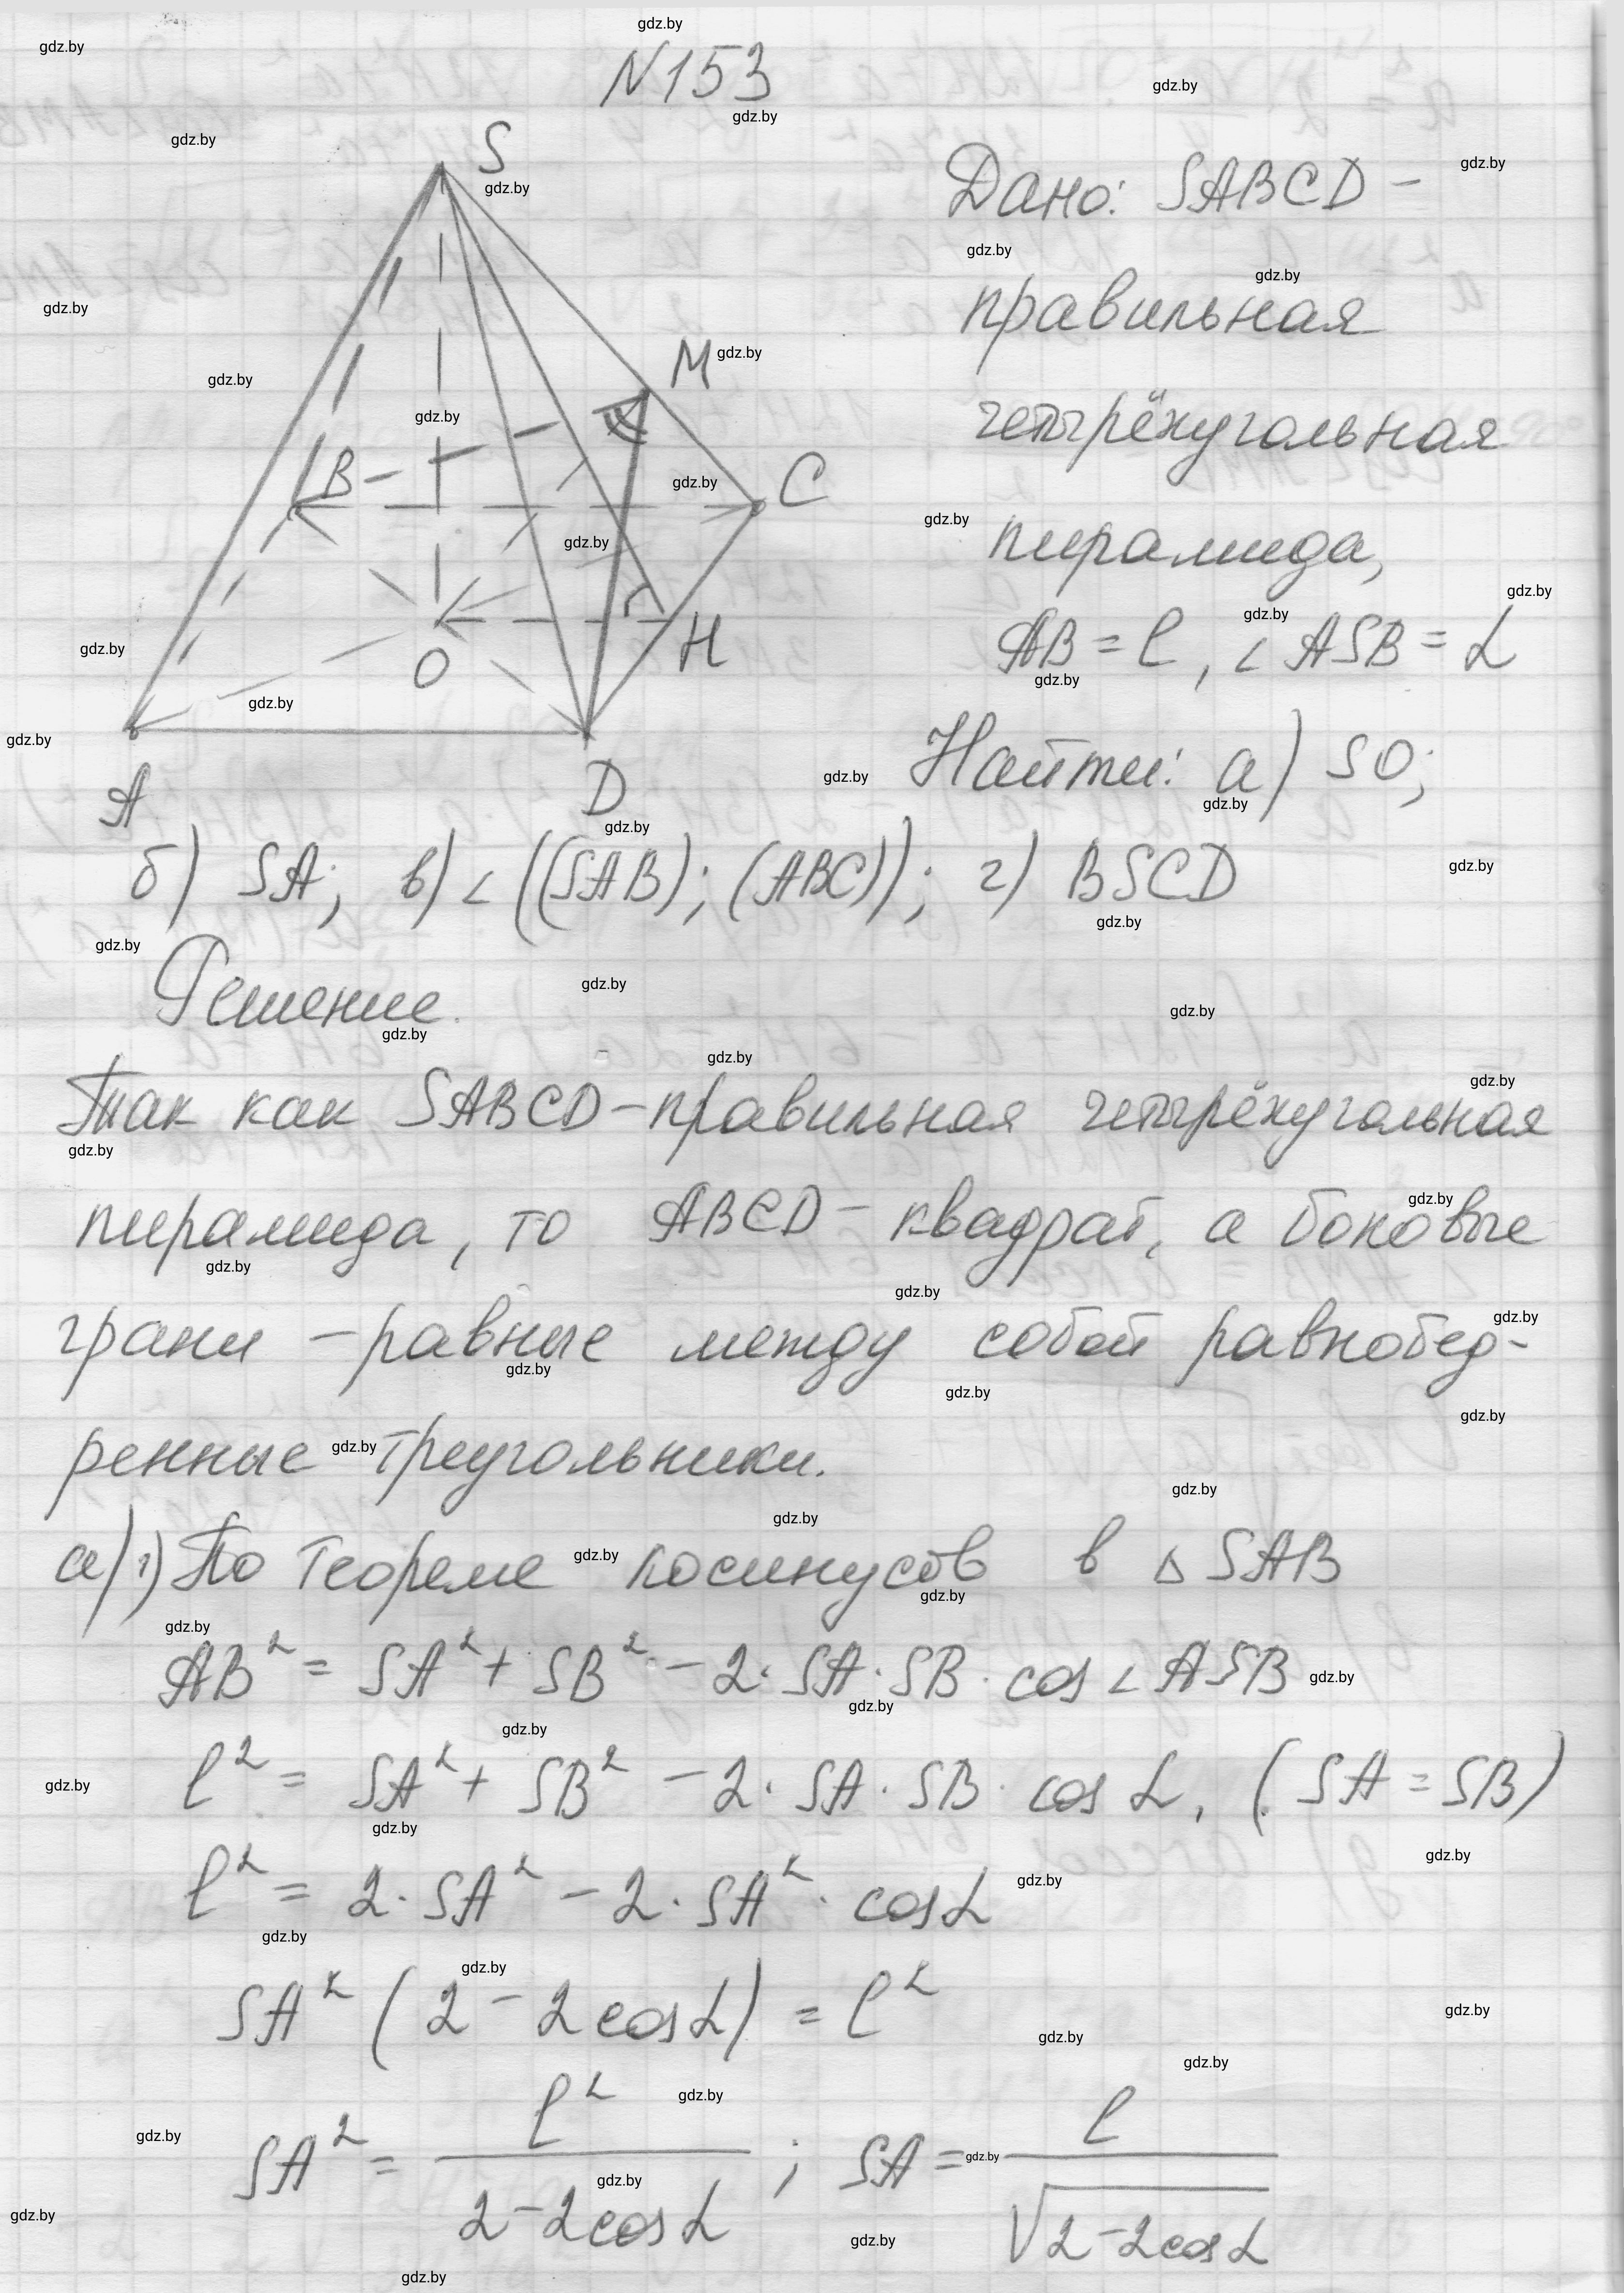 N153
S
M
B
C
O
H
A
D
Дано: SABCD –
правильная
четырёхугольная
пирамида,
AB = l, ∠ASB = α
Найти: а) SO;
б) SA; в) ∠((SAB); (ABC)); г) BSCD
Решение.
Так как SABCD – правильная четырёхугольная
пирамида, то ABCD – квадрат, а боковые
грани – равные между собой равнобед-
ренные треугольники.
а) 1) По теореме косинусов в △SAB
AB² = SA² + SB² – 2·SA·SB·cos∠ASB
l² = SA² + SB² – 2·SA·SB·cosα, (SA = SB)
l² = 2·SA² – 2·SA²·cosα
SA²(2 – 2cosα) = l²
SA² = l² / (2 – 2cosα); SA = l / √(2 – 2cosα)
gdz.by